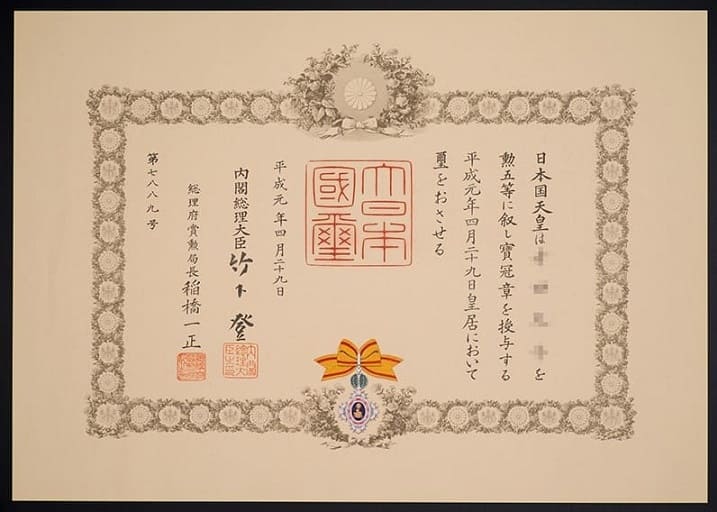 日本国天皇は
を
勲五等に叙し寶冠章を授与する
平成元年四月二十九日皇居において
璽をおさせる
大日本
國璽
平成元年四月二十九日
内閣総理大臣 竹下 登
総理府賞勲局長 稲橋一正
第七八八九号